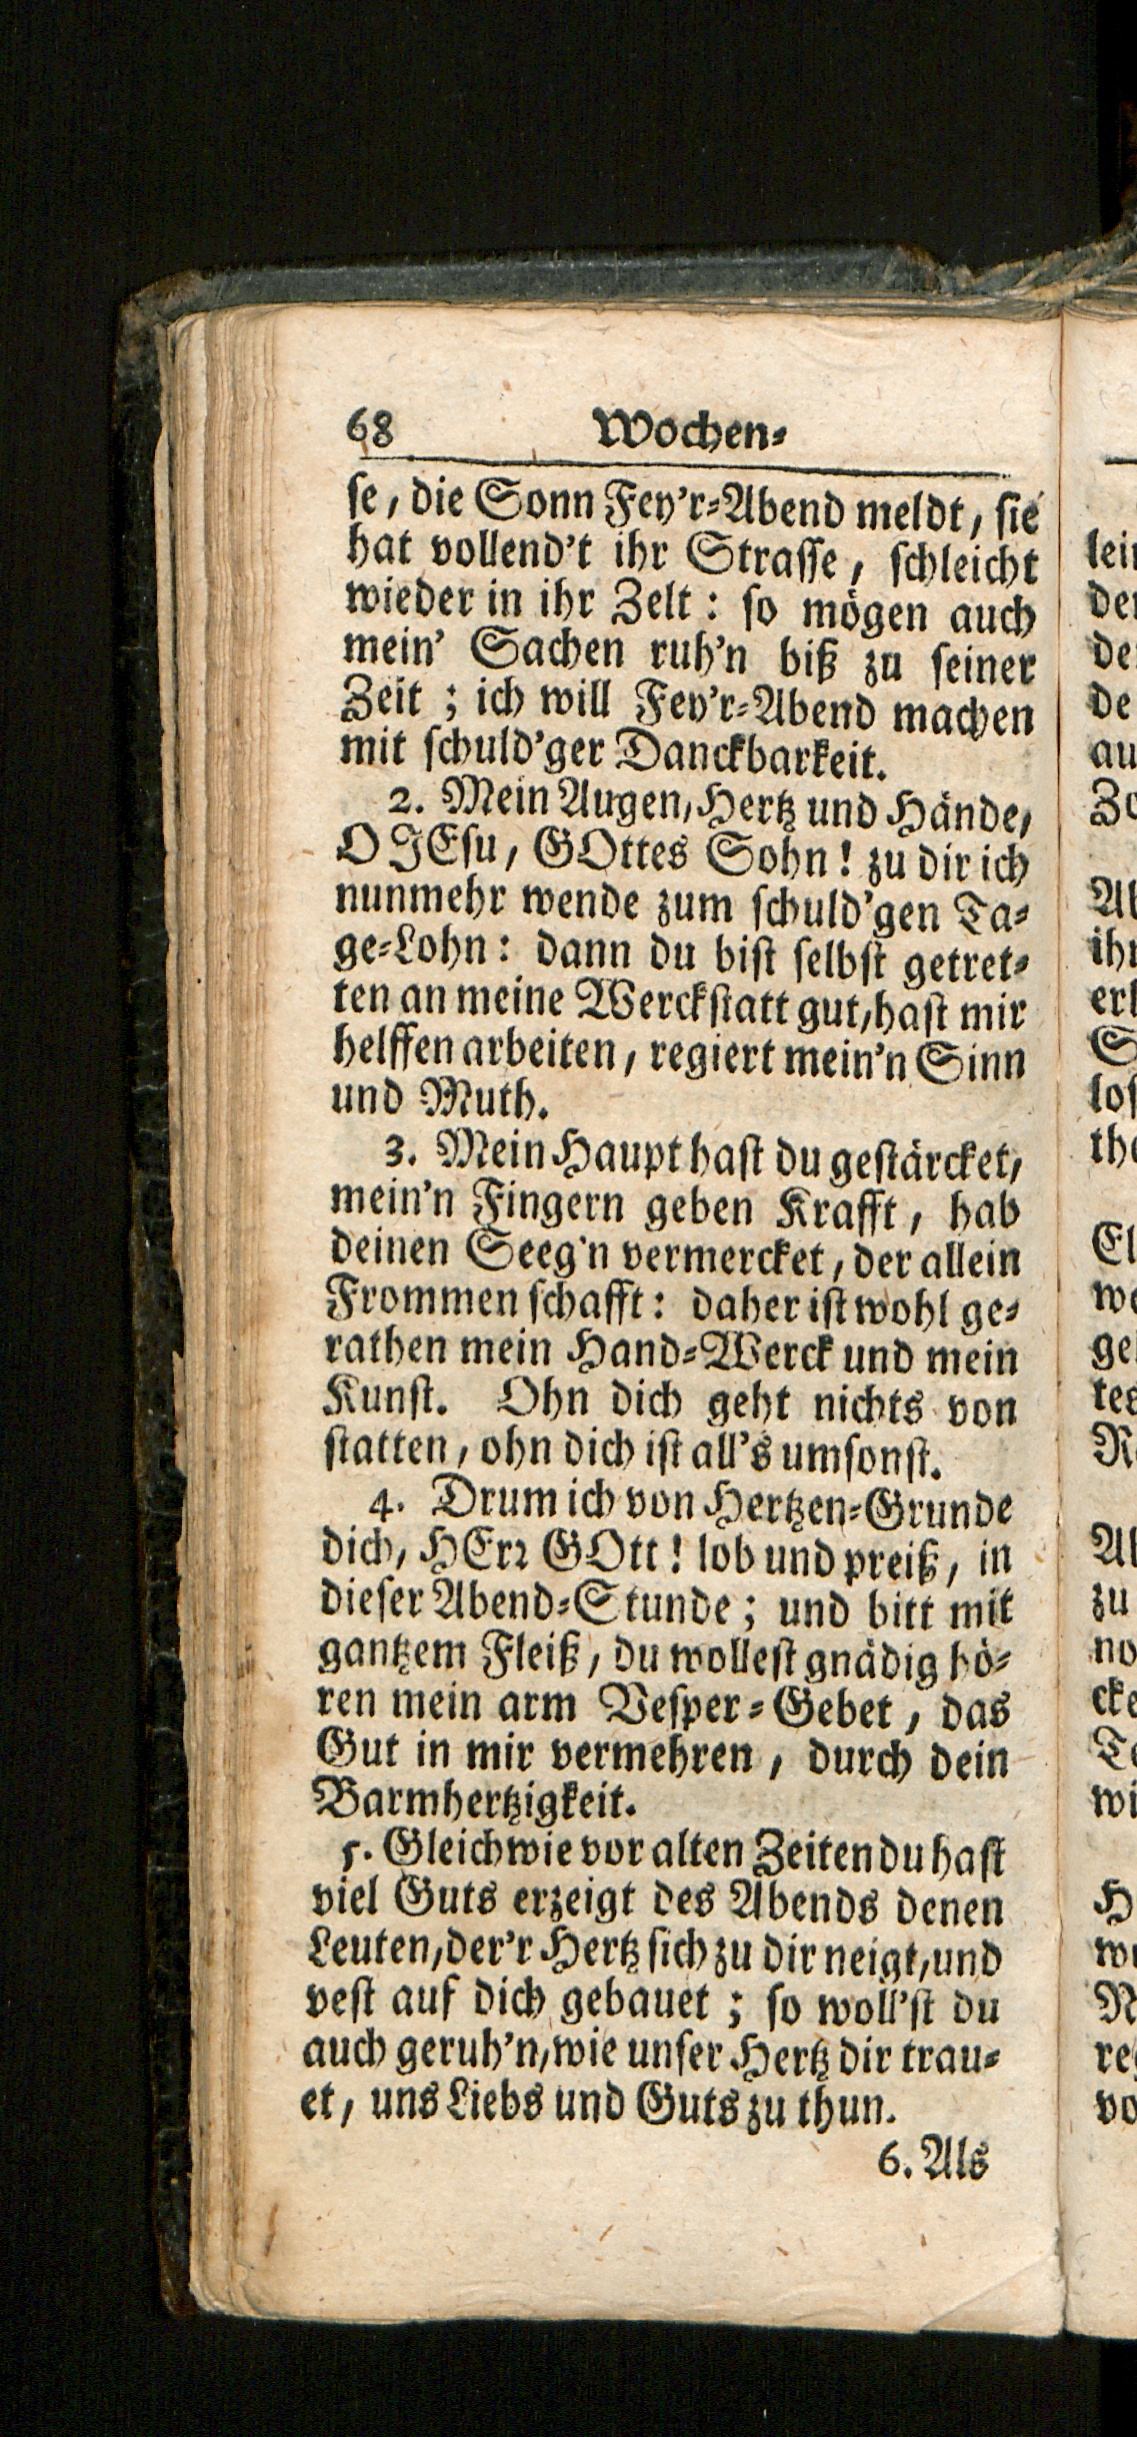 68 Wochen-
se, die Sonn Fey'r-Abend meldt, sie
hat vollend't ihr Strasse, schleicht
wieder in ihr Zelt: so mögen auch
mein' Sachen ruh'n biß zu seiner
Zeit; ich will Fey'r-Abend machen
mit schuld'ger Danckbarkeit.
2. Mein Augen, Hertz und Hände,
O JEsu, GOttes Sohn! zu dir ich
nunmehr wende zum schuld'gen Ta-
ge-Lohn: dann du bist selbst getret-
ten an meine Werckstatt gut, hast mir
helffen arbeiten, regiert mein'n Sinn
und Muth.
3. Mein Haupt hast du gestärcket,
mein'n Fingern geben Krafft, hab
deinen Seeg'n vermercket, der allein
Frommen schafft: daher ist wohl ge-
rathen mein Hand-Werck und mein
Kunst. Ohn dich geht nichts von
statten, ohn dich ist all's umsonst.
4. Drum ich von Hertzen-Grunde
dich, HErr GOtt! lob und preiß, in
dieser Abend-Stunde; und bitt mit
gantzem Fleiß, du wollest gnädig hö-
ren mein arm Vesper-Gebet, das
Gut in mir vermehren, durch dein
Barmhertzigkeit.
5. Gleichwie vor alten Zeiten du hast
viel Guts erzeigt des Abends denen
Leuten, der'r Hertz sich zu dir neigt, und
vest auf dich gebauet; so woll'st du
auch geruh'n, wie unser Hertz dir trau-
et, uns Liebs und Guts zu thun.
6. Als